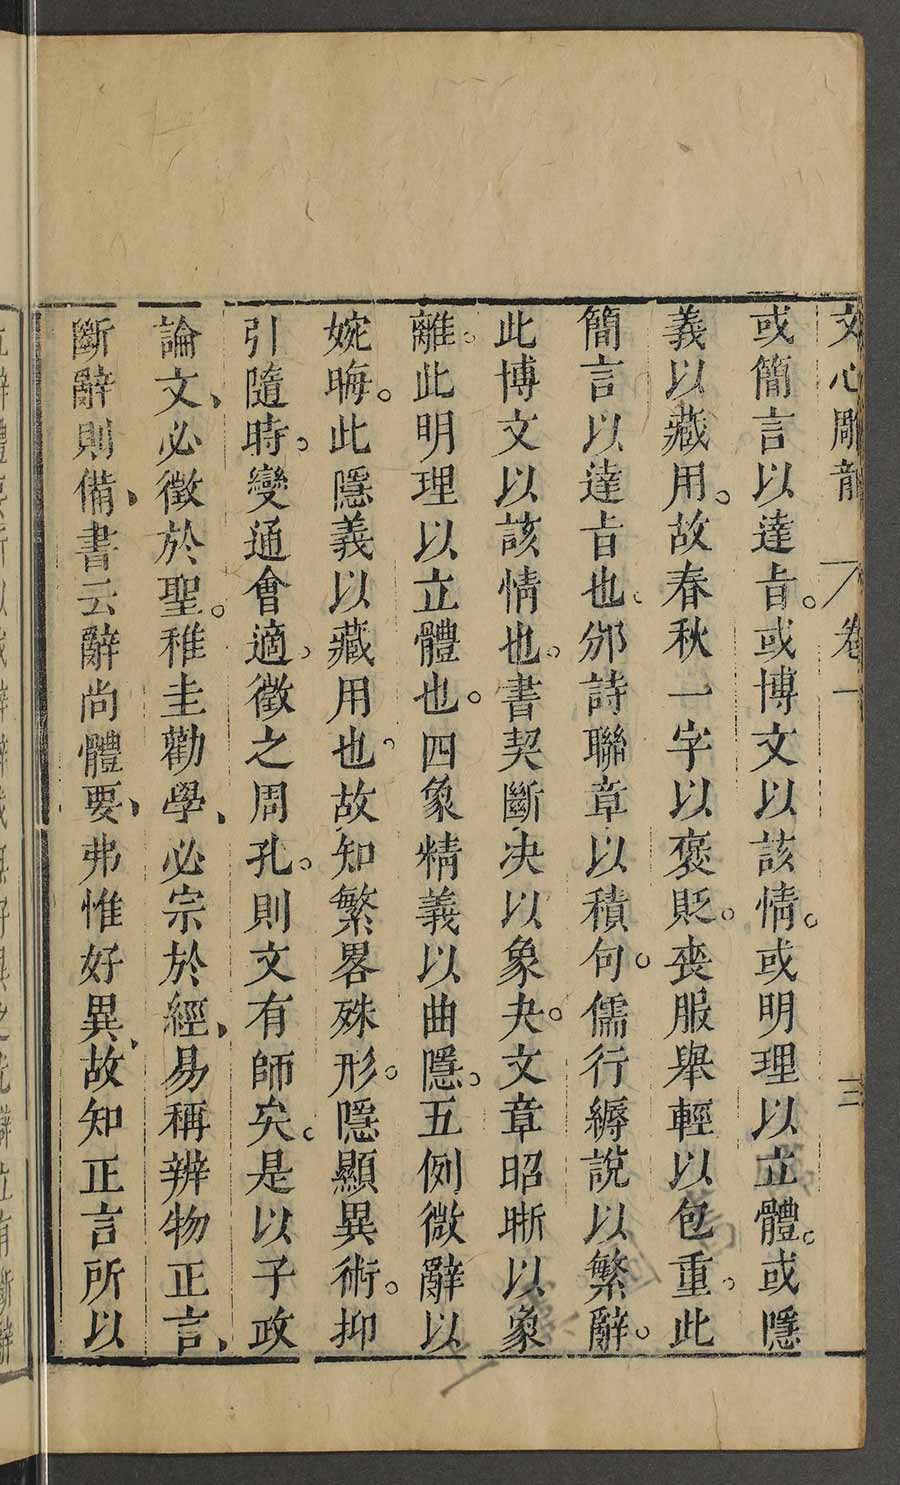 文心雕龍 卷一 三
或簡言以達㫖。或博文以該情。或明理以立體。或隱
義以藏用。故春秋一字以褒貶。喪服舉輕以包重。此
簡言以達㫖也。邠詩聯章以積句。儒行縟說以繁辭。
此博文以該情也。書契斷决以象夬。文章昭晣以象
離。此明理以立體也。四象精義以曲隱。五例微辭以
婉晦。此隱義以藏用也。故知繁畧殊形。隱顯異術。抑
引隨時。變通會適。徵之周孔。則文有師矣。是以子政
論文、必徵於聖。稚圭勸學、必宗於經、易稱辨物正言、
斷辭則備、書云辭尚體要、弗惟好異、故知正言所以